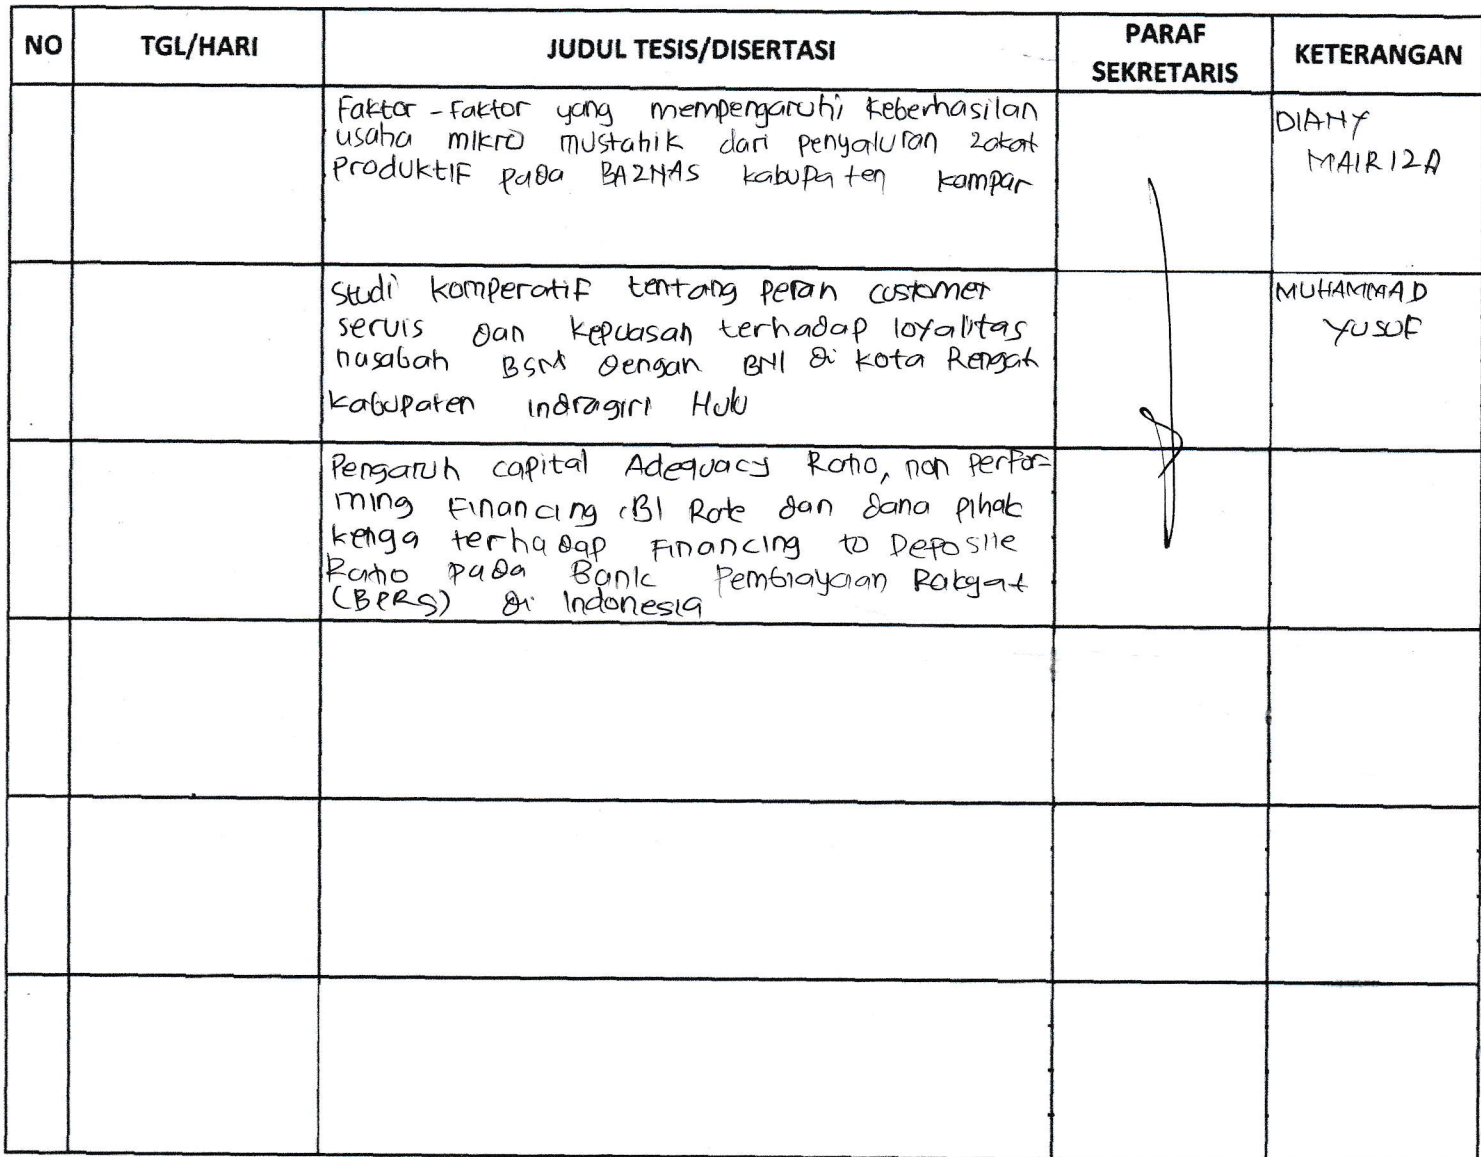 NO TGL/HARI JUDUL TESIS/DISERTASI PARAF SEKRETARIS KETERANGAN
Faktor - Faktor yang mempengaruhi keberhasilan
usaha mikro mustahik dari penyaluran zakat
Produktif pada BAZNAS kabupaten kampar
DIANY
MAIRIZA
Studi komperatif tentang peran customer
servis dan kepuasan terhadap loyalitas
nasabah BSM dengan BNI di kota Rengat
kabupaten indragiri Hulu
MUHAMMAD
YUSUF
Pengaruh capital Adequacy Ratio, non Perfor-
ming Financing, BI Rate dan dana pihak
ketiga terhadap Financing to Deposite
Ratio pada Bank Pembiayaan Rakyat
(BPRS) di Indonesia